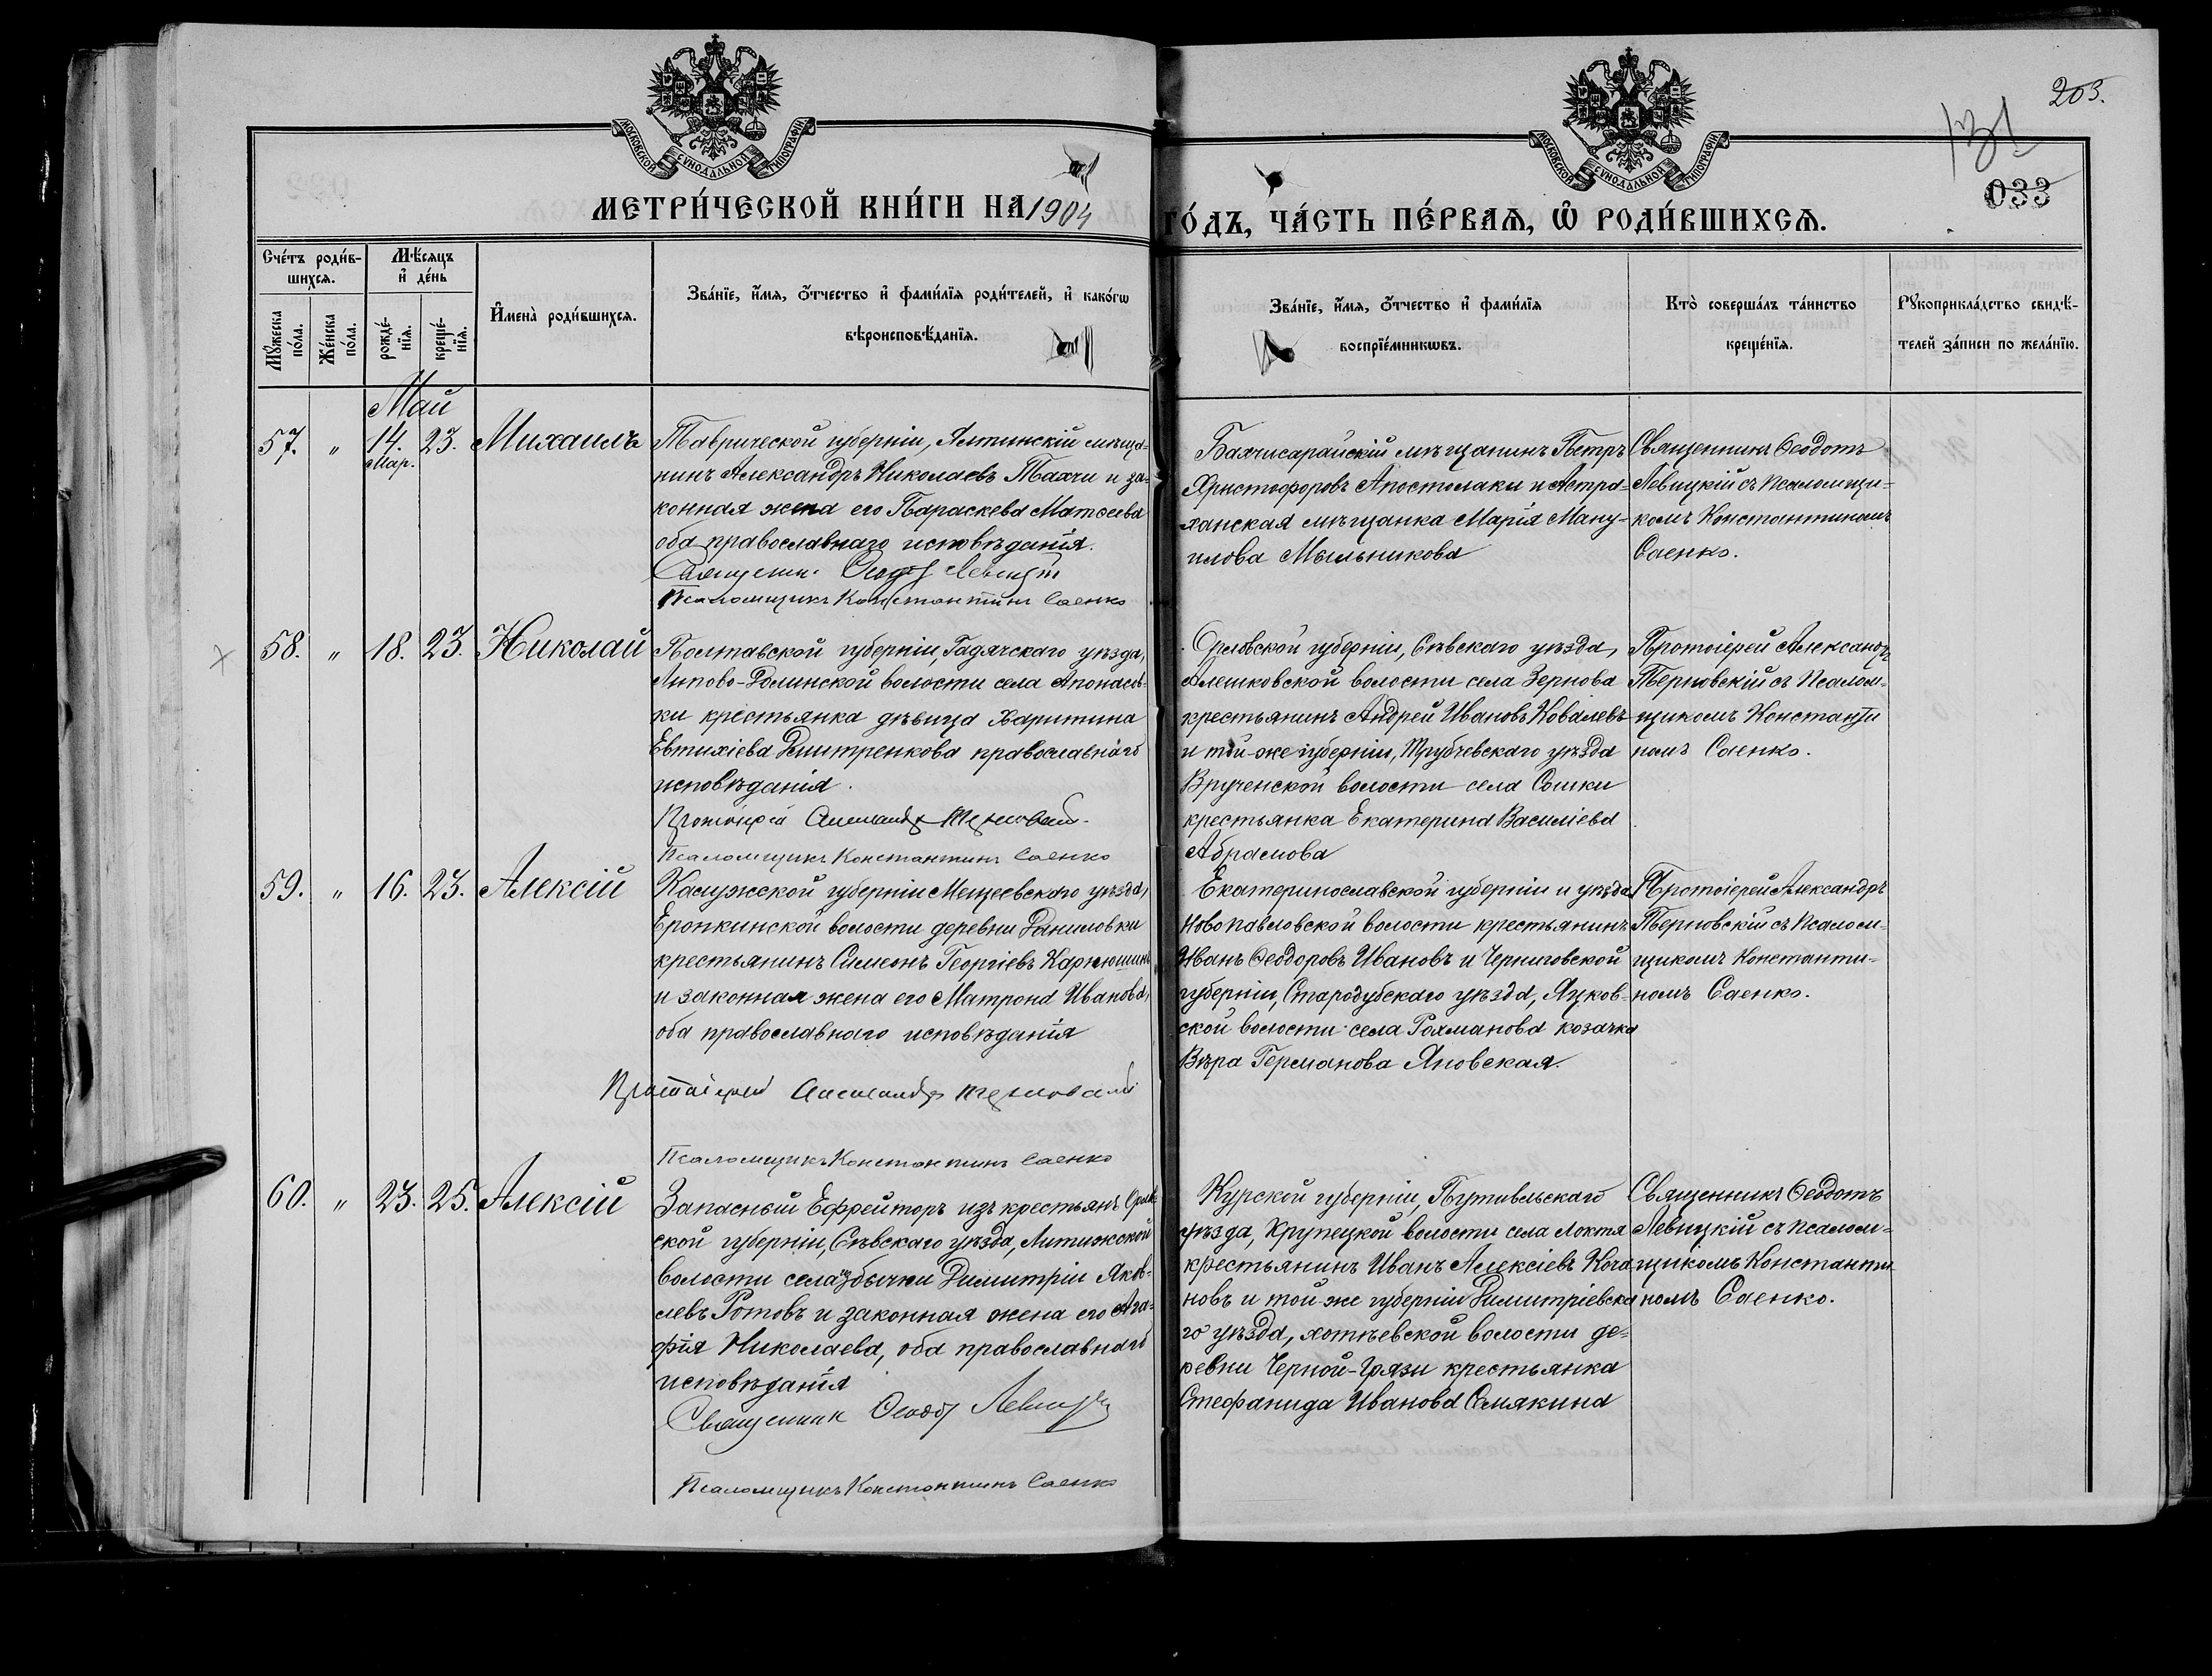 203.
131
033
МОСКОВСКОЙ СѴНОДАЛЬНОЙ ТИПОГРАФІИ
МОСКОВСКОЙ СѴНОДАЛЬНОЙ ТИПОГРАФІИ
МЕТРИ́ЧЕСКОЙ КНИ́ГИ НА 1904
ГО́ДЪ, ЧА́СТЬ ПЕ́РВАѦ, Ѡ҆ РОДИ́ВШИХСѦ.
Сче́тъ роди́в-
шихсѧ.
Мꙋ́жеска
по́ла.
Же́нска
по́ла.
Мѣ́сѧцъ
и҆ де́нь
рожде́-
нїѧ.
креще́-
нїѧ.
И҆мена̀ роди́вшихсѧ.
Зва́нїе, и҆́мѧ, ѻ҆́тчество и҆ фами́лїѧ роди́телей, и҆ како́гѡ
вѣроисповѣ́данїѧ.
Зва́нїе, и҆́мѧ, ѻ҆́тчество и҆ фами́лїѧ
воспрїе́мникѡвъ.
Кто̀ соверша́лъ та́инство
креще́нїѧ.
Рꙋкоприкла́дство свидѣ́-
телей за́писи по жела́нїю.
Май
57. " 14. Мар. 23. Михаилъ
Таврической губерніи, Ялтинскій мѣща-
нинъ Александръ Николаевъ Тахчи и за-
конная жена его Параскева Матѳеева
оба православнаго исповѣданія.
Священник Ѳеодот Левицкій
Псаломщикъ Константинъ Саенко
Бахчисарайскій мѣщанинъ Петръ
Христофоровъ Апостолаки и Астра-
ханская мѣщанка Марія Ману-
илова Мыльникова
Священникъ Ѳеодотъ
Левицкій съ псаломщи-
комъ Константиномъ
Саенко.
58. " 18. 23. Николай
Полтавской губерніи, Гадячскаго уѣзда,
Липово-Долинской волости села Апонасов-
ки крестьянка дѣвица Харитина
Евтихіева Дмитренкова православнаго
исповѣданія.
Протоіерей Александр Терновскій
Псаломщикъ Константинъ Саенко
Орловской губерніи, Сѣвскаго уѣзда,
Алешковской волости села Зернова
крестьянинъ Андрей Ивановъ Ковалевъ
и той-же губерніи, Трубчевскаго уѣзда
Врученской волости села Сошки
крестьянка Екатерина Василіева
Абрамова
Протоіерей Александръ
Терновскій съ псалом-
щикомъ Константи
номъ Саенко.
59. " 16. 23. Алексій
Калужской губерніи Мещевскаго уѣзда,
Еропкинской волости деревни Даниловки
крестьянинъ Симеонъ Георгіевъ Карнюшинъ
и законная жена его Матрона Иванова,
оба православнаго исповѣданія
Протоіерей Александр Терновскій
Псаломщикъ Константинъ Саенко
Екатеринославской губерніи и уѣзда
Новопавловской волости крестьянинъ
Иванъ Ѳеодоровъ Ивановъ и Черниговской
губерніи, Стародубскаго уѣзда, Яцков-
ской волости села Рохманова козачка
Вѣра Германова Яновская.
Протоіерей Александръ
Терновскій съ псалом-
щикомъ Константи-
номъ Саенко.
60. " 23. 25. Алексій
Запасный Ефрейторъ изъ крестьянъ Орлов
ской губерніи, Сѣвскаго уѣзда, Литижской
волости села Избычки Димитрій Яков-
левъ Ротовъ и законная жена его Ага-
фія Николаева, оба православнаго
исповѣданія
Священник Ѳеодот Левицкій
Псаломщикъ Константинъ Саенко
Курской губерніи, Путивльскаго
уѣзда, Крупецкой волости села Локтя
крестьянинъ Иванъ Алексіевъ Кочa
новъ и той-же губерніи Димитріевска
го уѣзда, хотѣевской волости де-
ревни Черной-Грязи крестьянка
Стефанида Иванова Самякина
Священникъ Ѳеодотъ
Левицкій съ псалом-
щикомъ Константи
номъ Саенко.